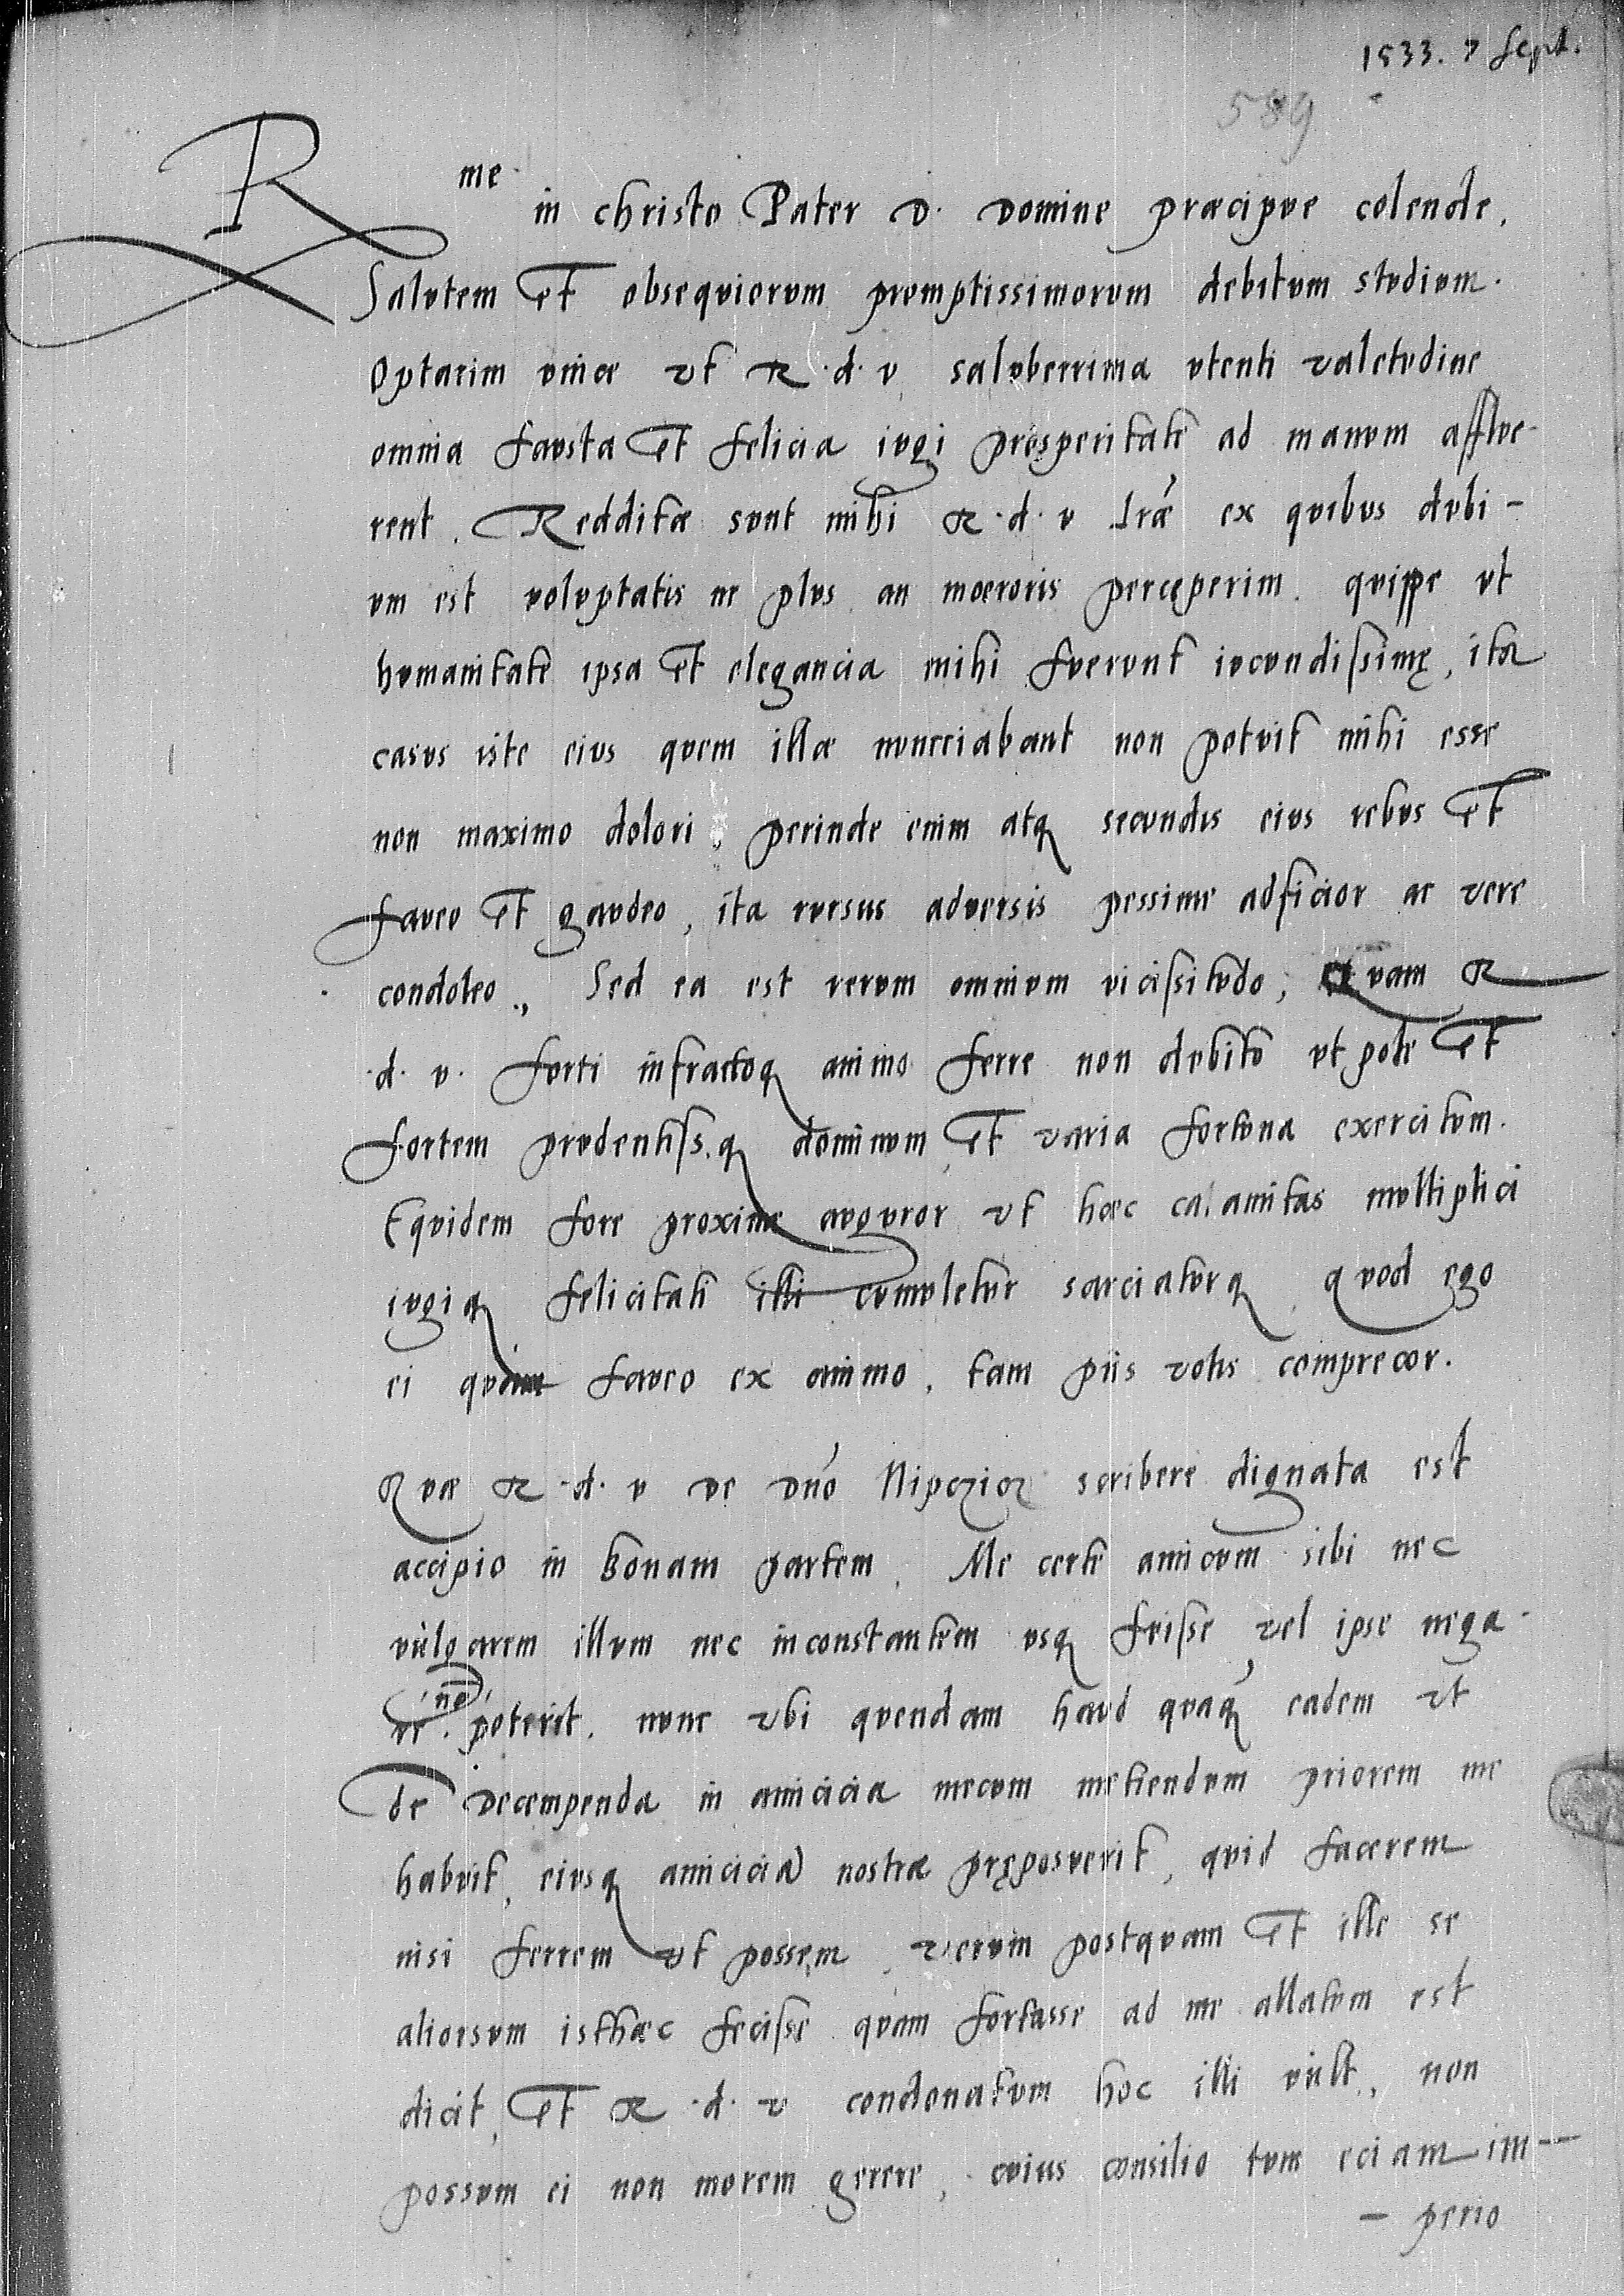 1533. 7 Sept.
589
R me in christo Pater D. Domine præcipve colende,
Salvtem et obseqviorvm promptissimorvm debitvm stvdivm.
Optarim vnice vt R. d. v salvberrima vtenti valetvdine
omnia favsta et felicia ivgi prosperitate ad manvm afflve-
rent. Redditæ svnt mihi R. d. v lræ ex qvibvs dvbi-
vm est volvptatis ne plvs an moeroris percęperim. qvippe vt
hvmanitate ipsa et elegancia mihi fvervnt iocvndissimę, ita
casvs iste eivs qvem illæ nvncciabant non potvit mihi esse
non maximo dolori, perinde enim atq secvndis eivs rebvs et
faveo et gavdeo, ita rvrsus adversis pessime adficior ac vere
condoleo., Sed ea est rervm omnivm vicissitvdo, Qvam R
.d. v. forti infractoq animo ferre non dvbito vt pote et
fortem prvdentiss.q dominvm et varia fortvna exercitvm.
Eqvidem fore proxime avgvror vt hæc calamitas mvltiplici
ivgiq felicitati illi cvmvletvr sarciatvrq, qvod ego
ei qvam faveo ex animo, tam piis votis comprecor.
Qvæ R. d. v de dno Nipczicz scribere dignata est
accipio in bonam partem. Me certe amicvm sibi nec
vvlgarem illvm nec inconstantem vsq fvisse vel ipse nega-
re no poterit. nvnc vbi qvendam havd qvaq eadem vt
de decempenda in amicicia mecvm metiendvm priorem me
habvit, eivsq amiciciã nostræ pręposverit, qvid facerem
nisi ferrem vt possem, vervm postqvam et ille se
aliorsvm isthæc fecisse qvam fortasse ad me allatvm est
dicit, et R. d. v condonatvm hoc illi vvlt, non
possvm ei non morem gerere, cvivs consilio tvm eciam im-
- perio